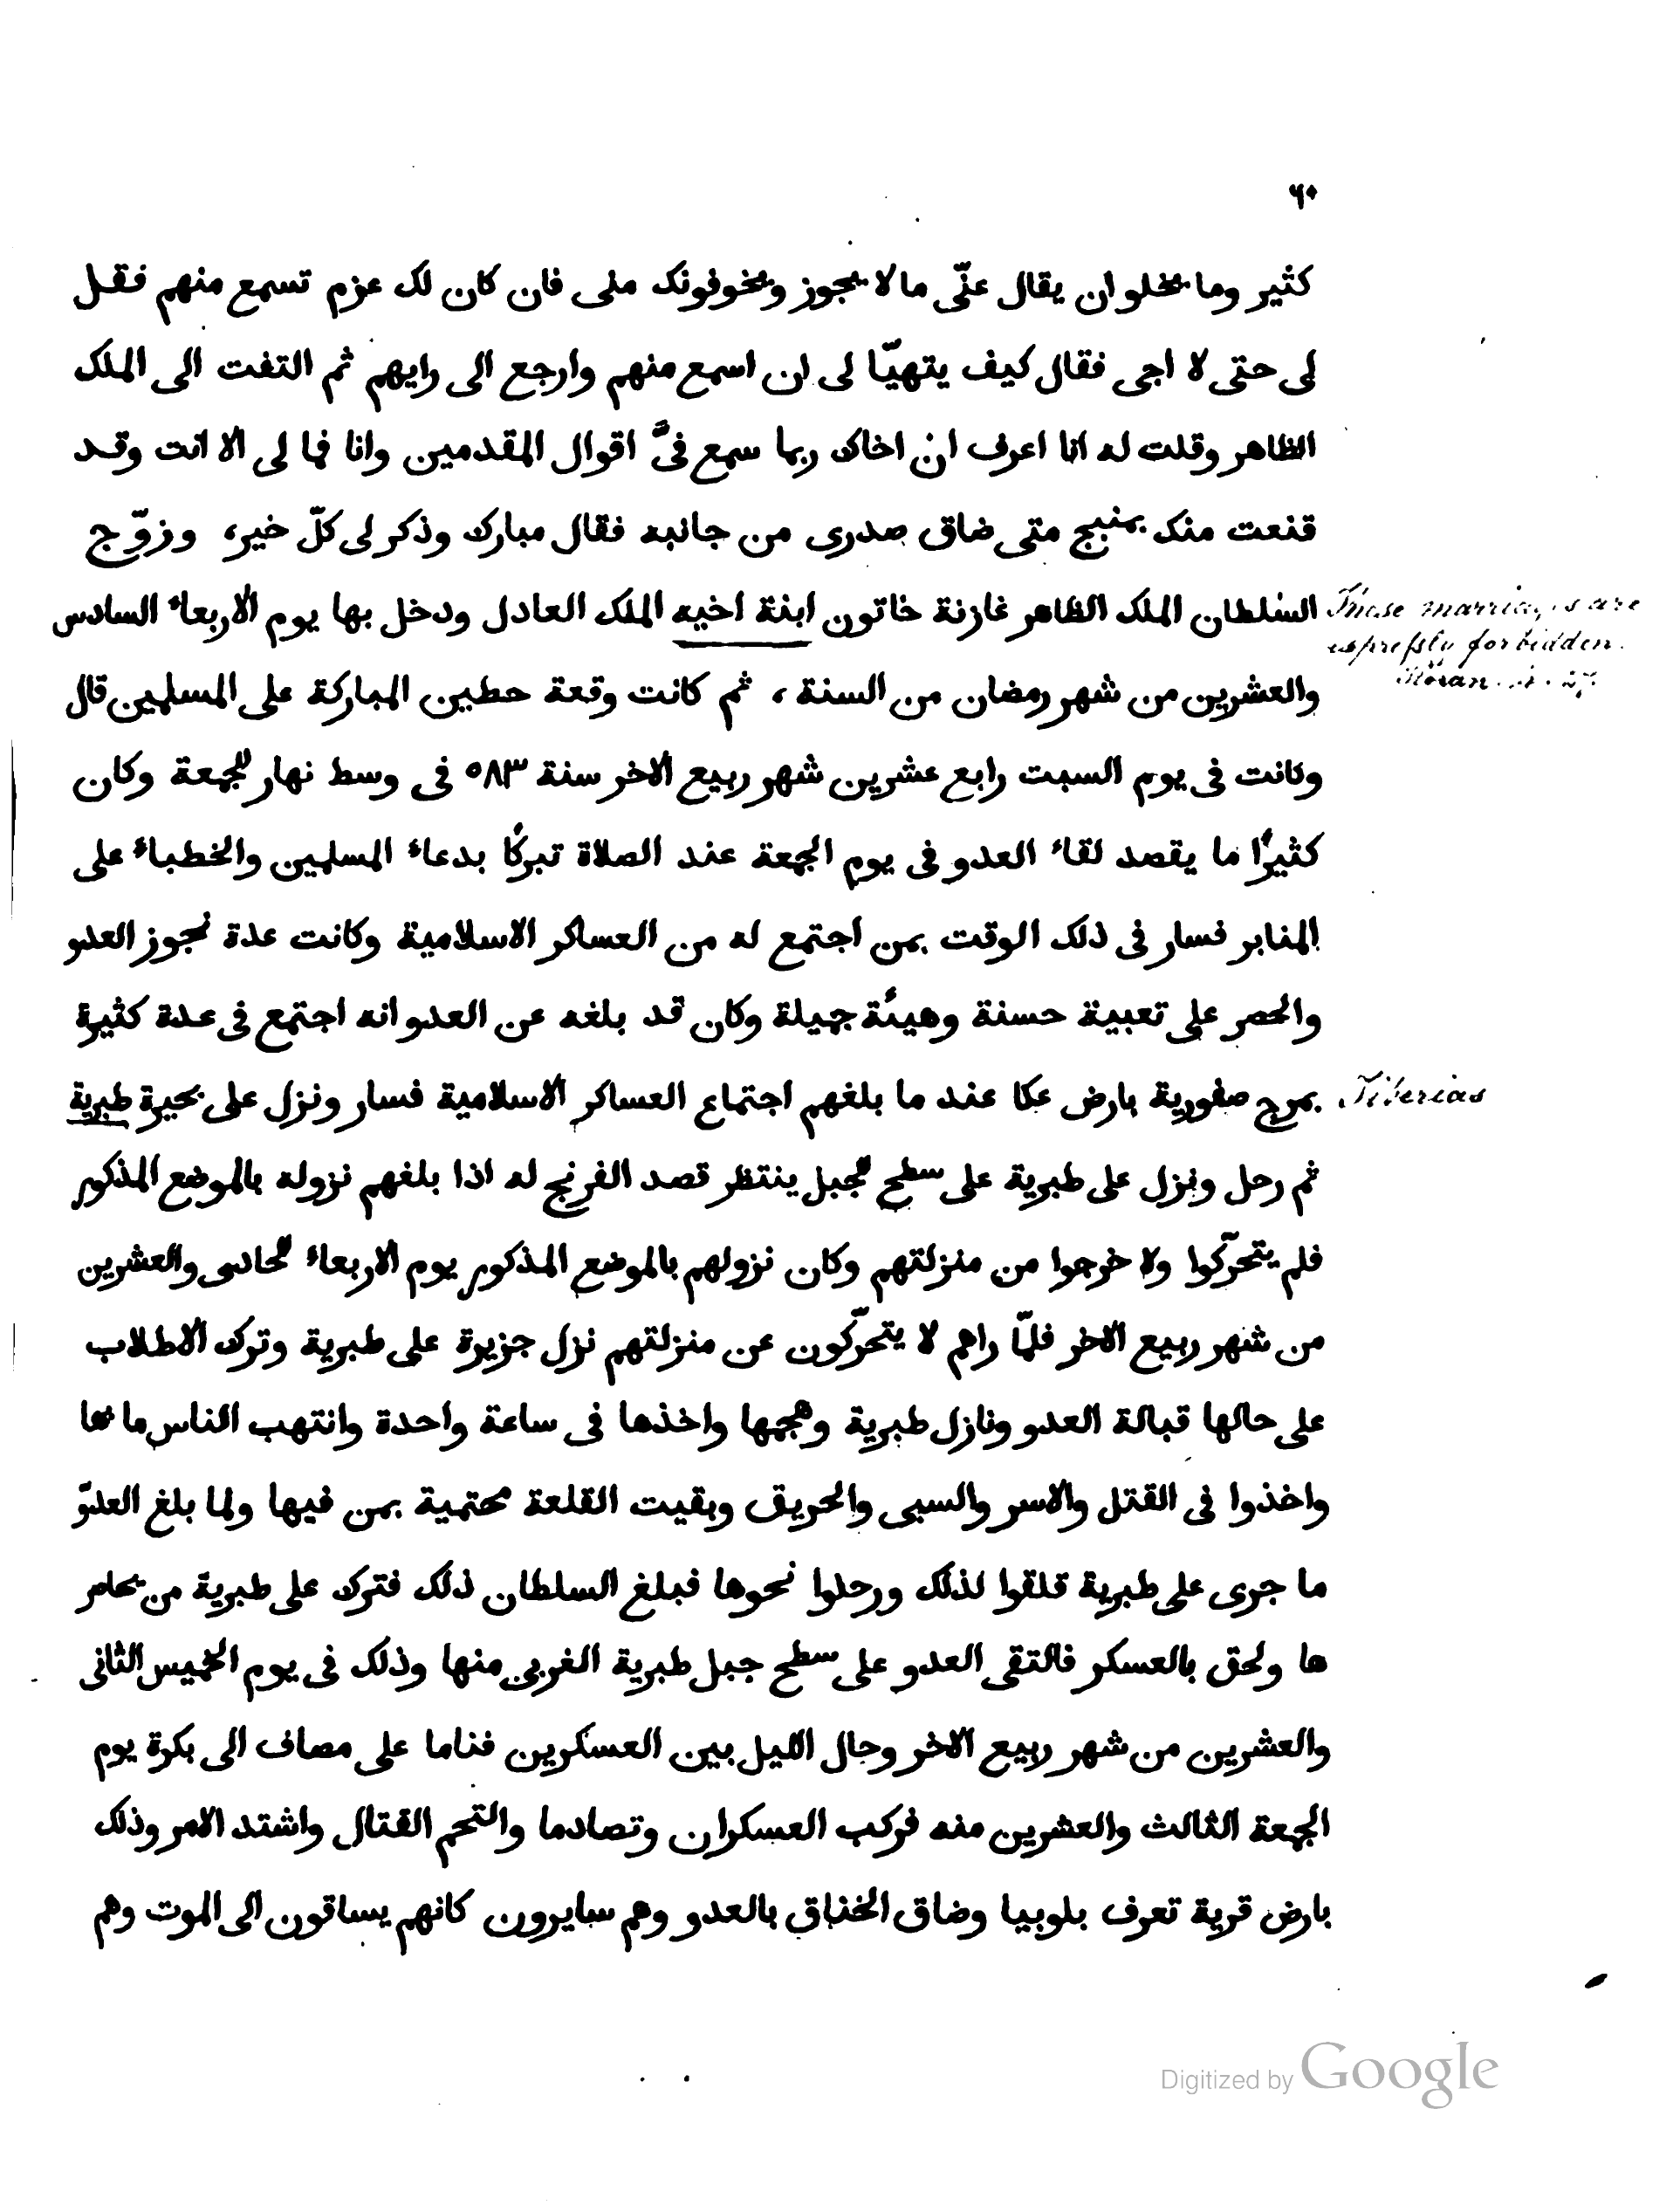 ٦٠
كثير وما يخلو ان يقال عنّى ما لا يجوز ويخوفونك منى فان كان لك عزم تسمع منهم فقل
لى حتى لا اجى فقال كيف يتهيّا لى ان اسمع منهم وارجع الى رايهم ثم التفت الى الملك
الظاهر وقلت له انا اعرف ان اخاك ربما سمع فىَّ اقوال المقدمين وانا فما لى الا انت وقد
قنعت منك بمنبج متى ضاق صدرى من جانبه فقال مبارك وذكر لى كلّ خير، وزوّج
السلطان الملك الظاهر غازنة خاتون ابنة اخيه الملك العادل ودخل بها يوم الاربعاء السادس
These marriages are
expressly forbidden.
Koran
والعشرين من شهر رمضان من السنة، ثم كانت وقعة حطين المباركة على المسلمين قال
وكانت فى يوم السبت رابع عشرين شهر ربيع الاخر سنة ٥٨٣ فى وسط نهار الجمعة وكان
كثيرًا ما يقصد لقاء العدو فى يوم الجمعة عند الصلاة تبركًا بدعاء المسلمين والخطباء على
المنابر فسار فى ذلك الوقت بمن اجتمع له من العساكر الاسلامية وكانت عدة تجوز العد
والحصر على تعبية حسنة وهيئة جميلة وكان قد بلغه عن العدو انه اجتمع فى عدة كثيرة
بمرج صفورية بارض عكا عند ما بلغهم اجتماع العساكر الاسلامية فسار ونزل على بحيرة طبرية
Tiberias
ثم رحل ونزل على طبرية على سطح الجبل ينتظر قصد الفرنج له اذا بلغهم نزوله بالموضع المذكور
فلم يتحرّكوا ولا خرجوا من منزلتهم وكان نزولهم بالموضع المذكور يوم الاربعاء الحادى والعشرين
من شهر ربيع الاخر فلمّا راهم لا يتحرّكون عن منزلتهم نزل جزيرة على طبرية وترك الاطلاب
على حالها قبالة العدو ونازل طبرية وهجمها واخذها فى ساعة واحدة وانتهب الناس ما بها
واخذوا فى القتل والاسر والسبى والحريق وبقيت القلعة محتمية بمن فيها ولما بلغ العدوّ
ما جرى على طبرية قلقوا لذلك ورحلوا نحوها فبلغ السلطان ذلك فترك على طبرية من يحاصر
ها ولحق بالعسكر فالتقى العدو على سطح جبل طبرية الغربى منها وذلك فى يوم الخميس الثانى
والعشرين من شهر ربيع الاخر وحال الليل بين العسكرين فناما على مصاف الى بكرة يوم
الجمعة الثالث والعشرين منه فركب العسكران وتصادما والتحم القتال واشتد الامر وذلك
بارض قرية تعرف بلوبيا وضاق الخناق بالعدو وهم سايرون كانهم يساقون الى الموت وهم
Digitized by Google